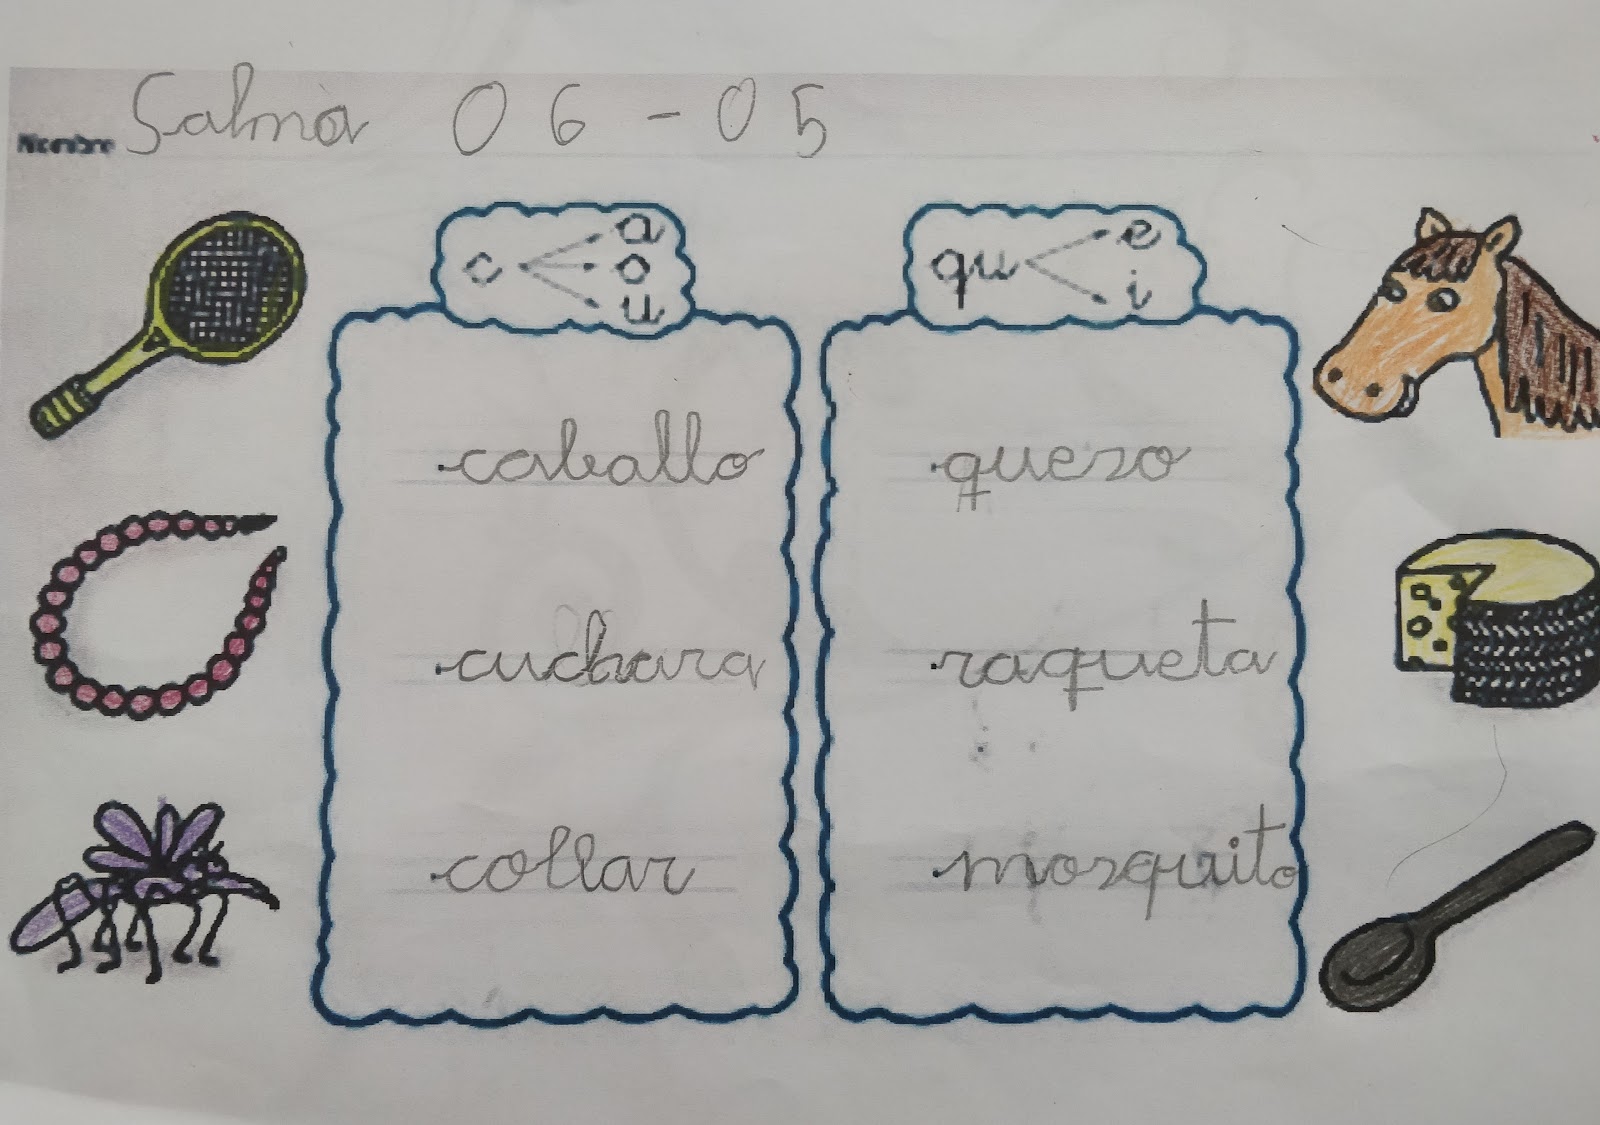 Nombre Salma 06-05
c a o u
qu e i
caballo
cuchara
collar
queso
raqueta
mosquito